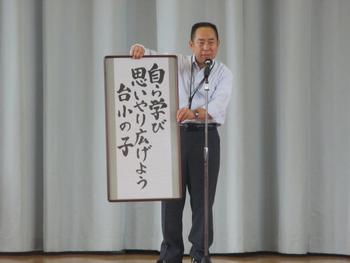 自ら学び
思いやり広げよう
台小の子